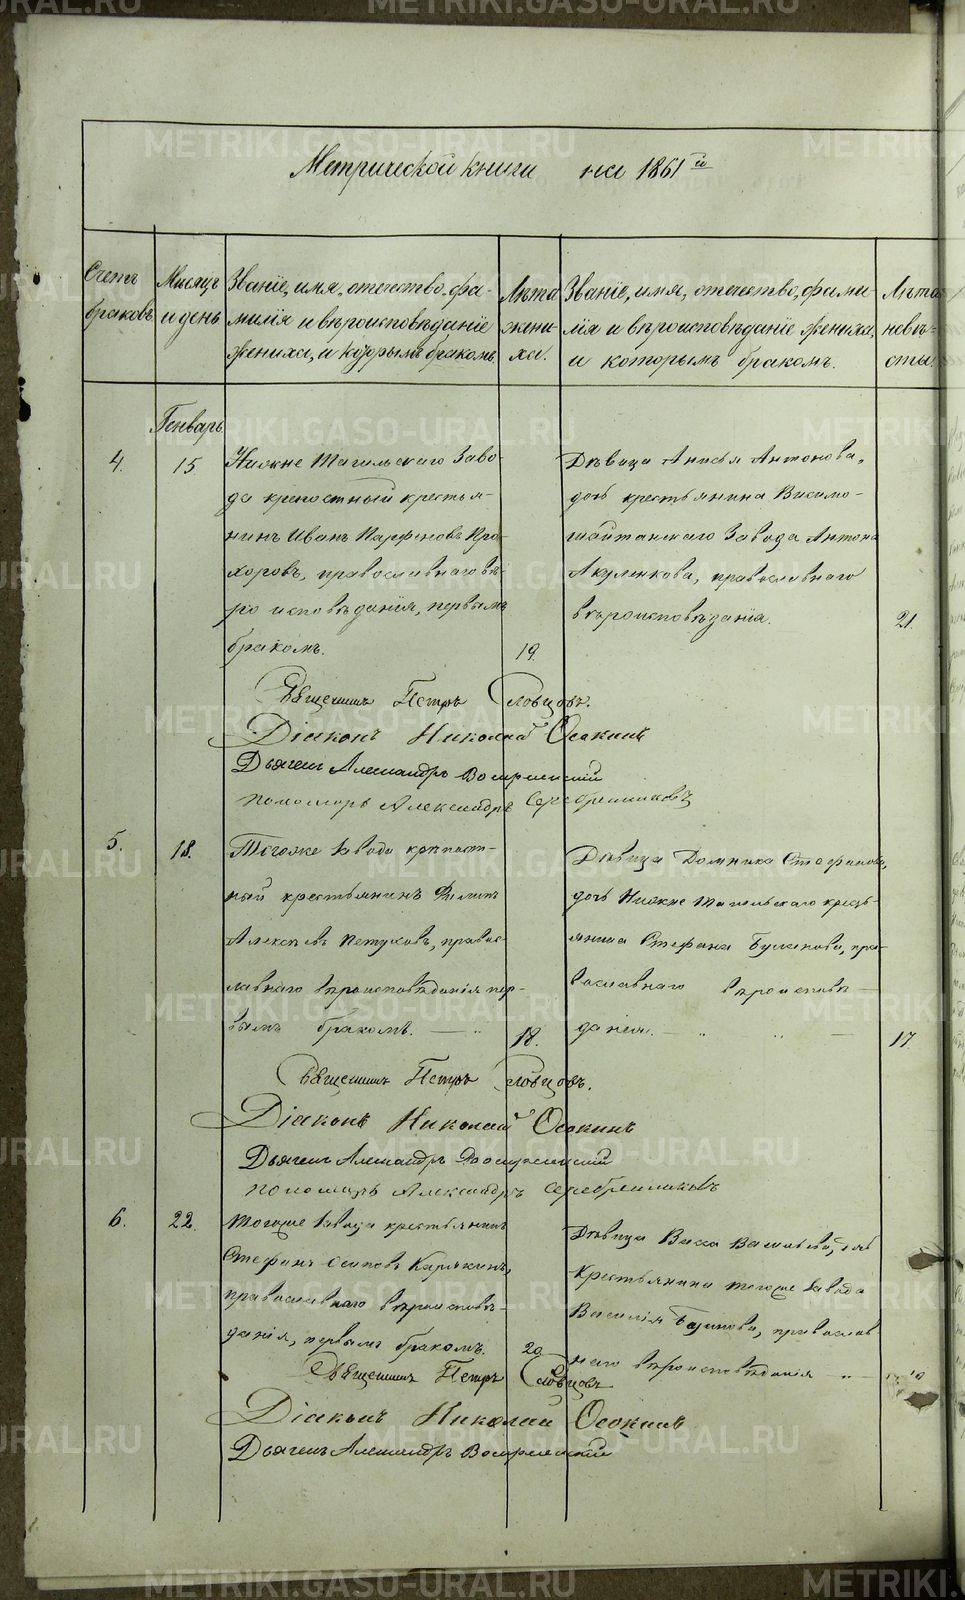 Метрической книги на 1861й
Счетъ
браковъ.
Мѣсяцъ
и день.
Званіе, имя, отечество, фа-
милія и вѣроисповѣданіе
жениха, и которымъ бракомъ.
Лѣта
жени-
ха.
Званіе, имя, отечество, фами
лія и вѣроисповѣданіе жениха,
и которымъ бракомъ.
Лѣта
невѣ-
сты.
Генварь.
4.
15
Нижне Тагильскаго Заво-
да крепостный крестья-
нинъ Иванъ Парфеновъ Про-
хоровъ, православнаго вѣ-
ро исповѣданія, первымъ
бракомъ.
19.
Дѣвица Анисья Антонова,
дочь крестьянина Висимо-
шайтанскаго Завода Антона
Акуленкова, православнаго
вѣроисповѣданія.
21.
Священникъ Петръ Словцовъ.
Діаконъ Николай Осокинъ
Дьячекъ Александръ
пономарь Александръ Серебренниковъ
5.
18.
Тогоже Завода крѣпост-
ный крестьянинъ Филипъ
Алексѣевъ Петуховъ, правос-
лавнаго вѣроисповѣданія пер-
вымъ бракомъ.
18.
Дѣвица Домника Стефанова,
дочь Нижне Тагильскаго кресть-
янина Стефана Буланова, пра-
вославнаго вѣроисповѣ-
данія.
17.
Священникъ Петръ Словцовъ.
Діаконъ Николай Осокинъ
Дьячекъ Александръ
пономарь Александръ Серебренниковъ
6.
22.
Тогоже Завода крестьянинъ
Стефанъ Осиповъ Карякинъ,
православнаго вѣроисповѣ-
данія, первымъ бракомъ.
20
Дѣвица Васса Васильева, дчь
Крестьянина тогоже Завода
Василія православ
наго вѣроисповѣданія
Священникъ Петръ Словцовъ
Діаконъ Николай Осокинъ
Дьячекъ Александръ